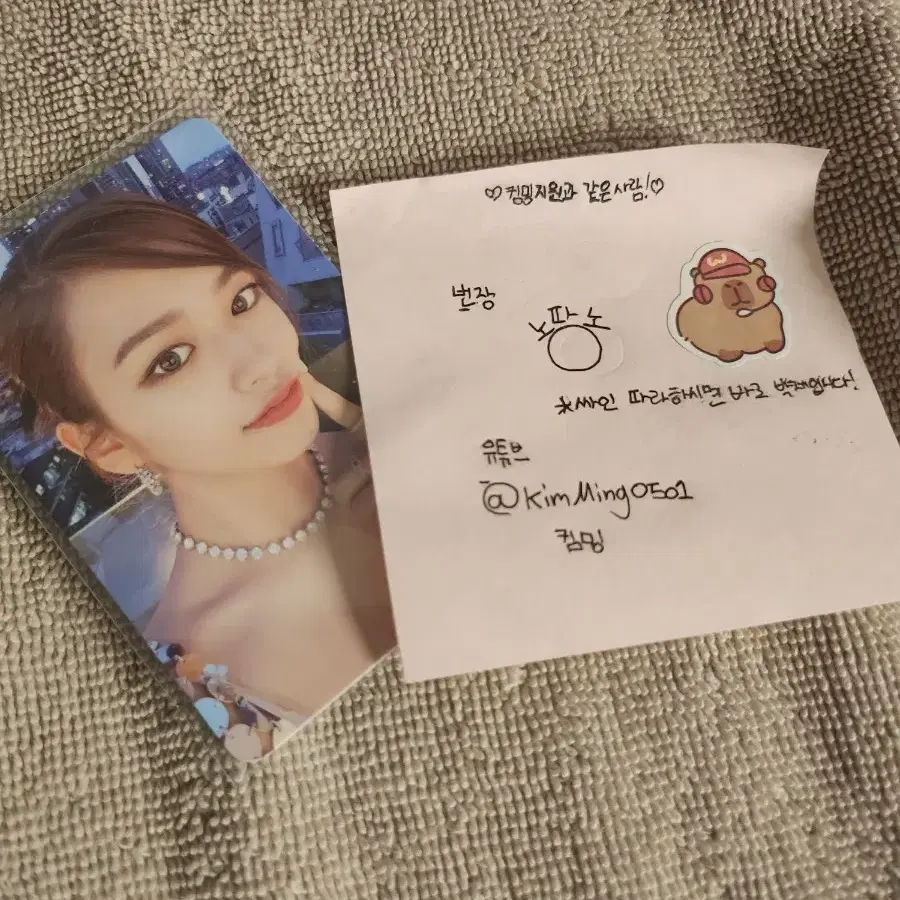 ♡킴밍지원과 같은사람!♡
번장
노파노
※싸인 따라하시면 바로 박제입니다!
유튜브
@kimMing0501
킴밍